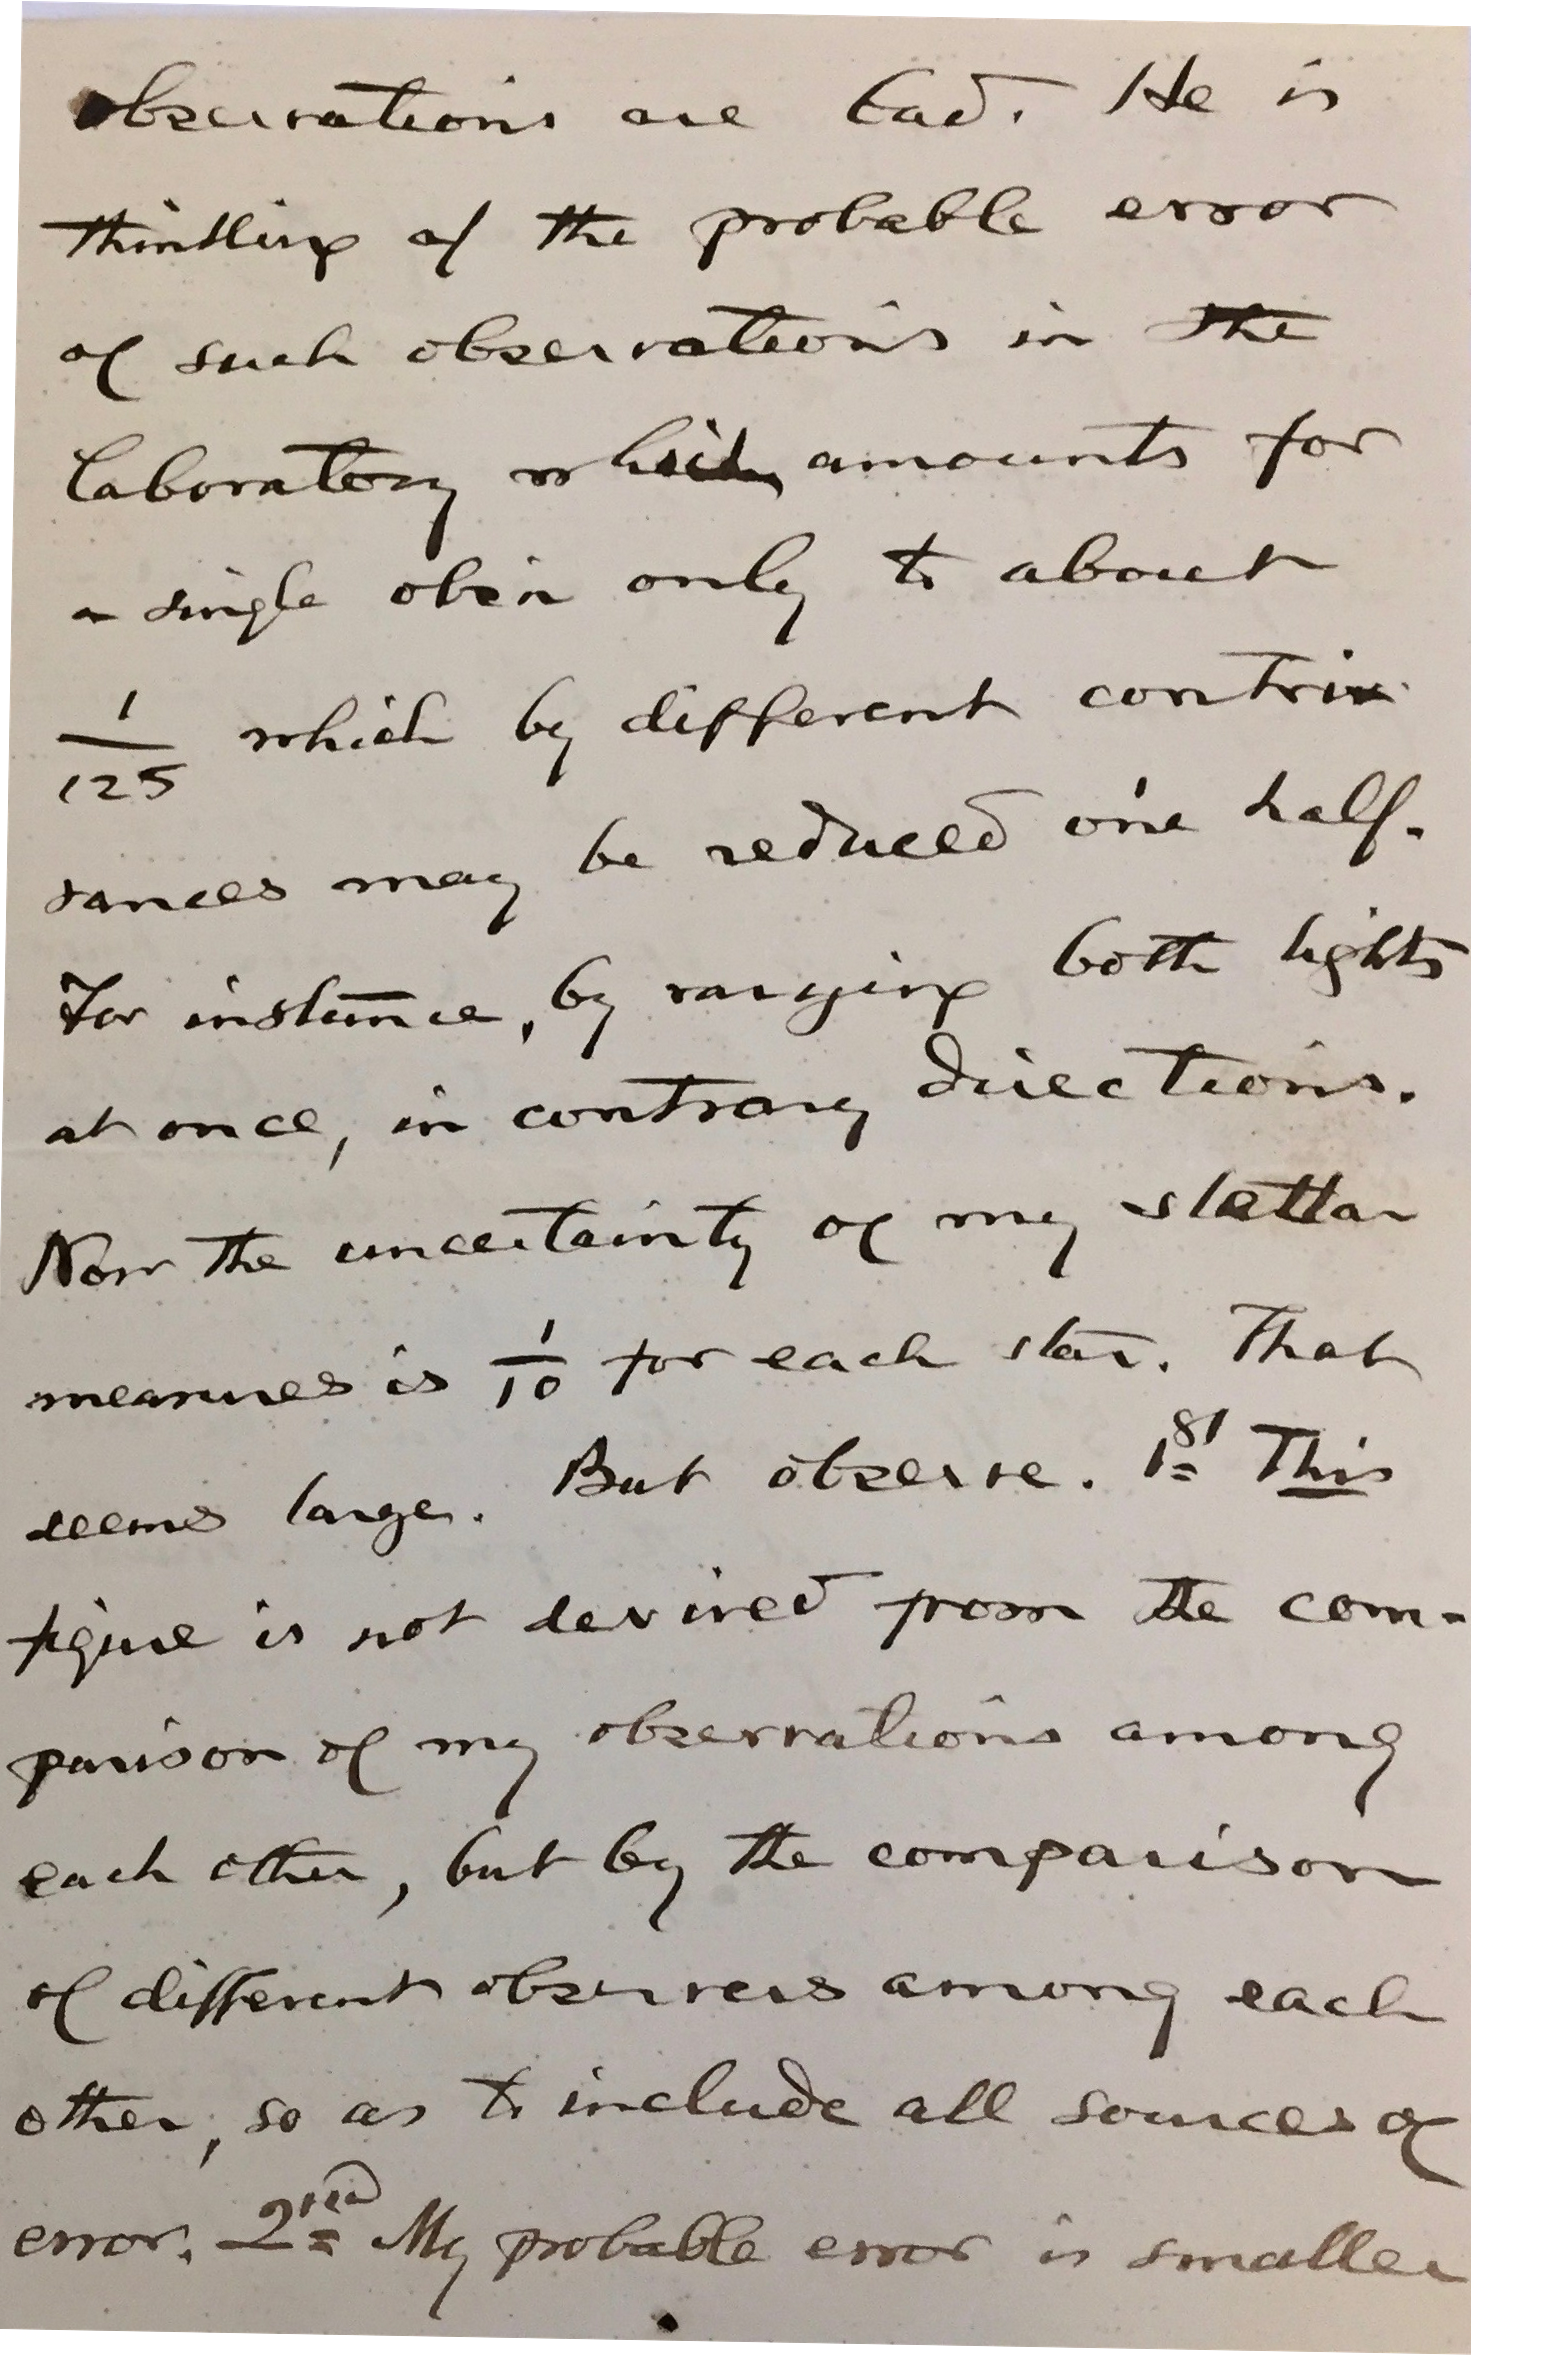 observations are bad. He is
thinking of the probable error
of such observations in the
laboratory which amounts for
a single obs'n only to about
1/125 which by different contriv-
ances may be reduced one half.
For instance, by varying both lights
at once, in contrary directions.
Now the uncertainty of my stellar
measures is 1/10 for each star. That
seems large. But observe. 1st This
figure is not derived from the com-
parison of my observations among
each other, but by the comparison
of different observers among each
other, so as to include all sources of
error. 2nd My probable error is smaller